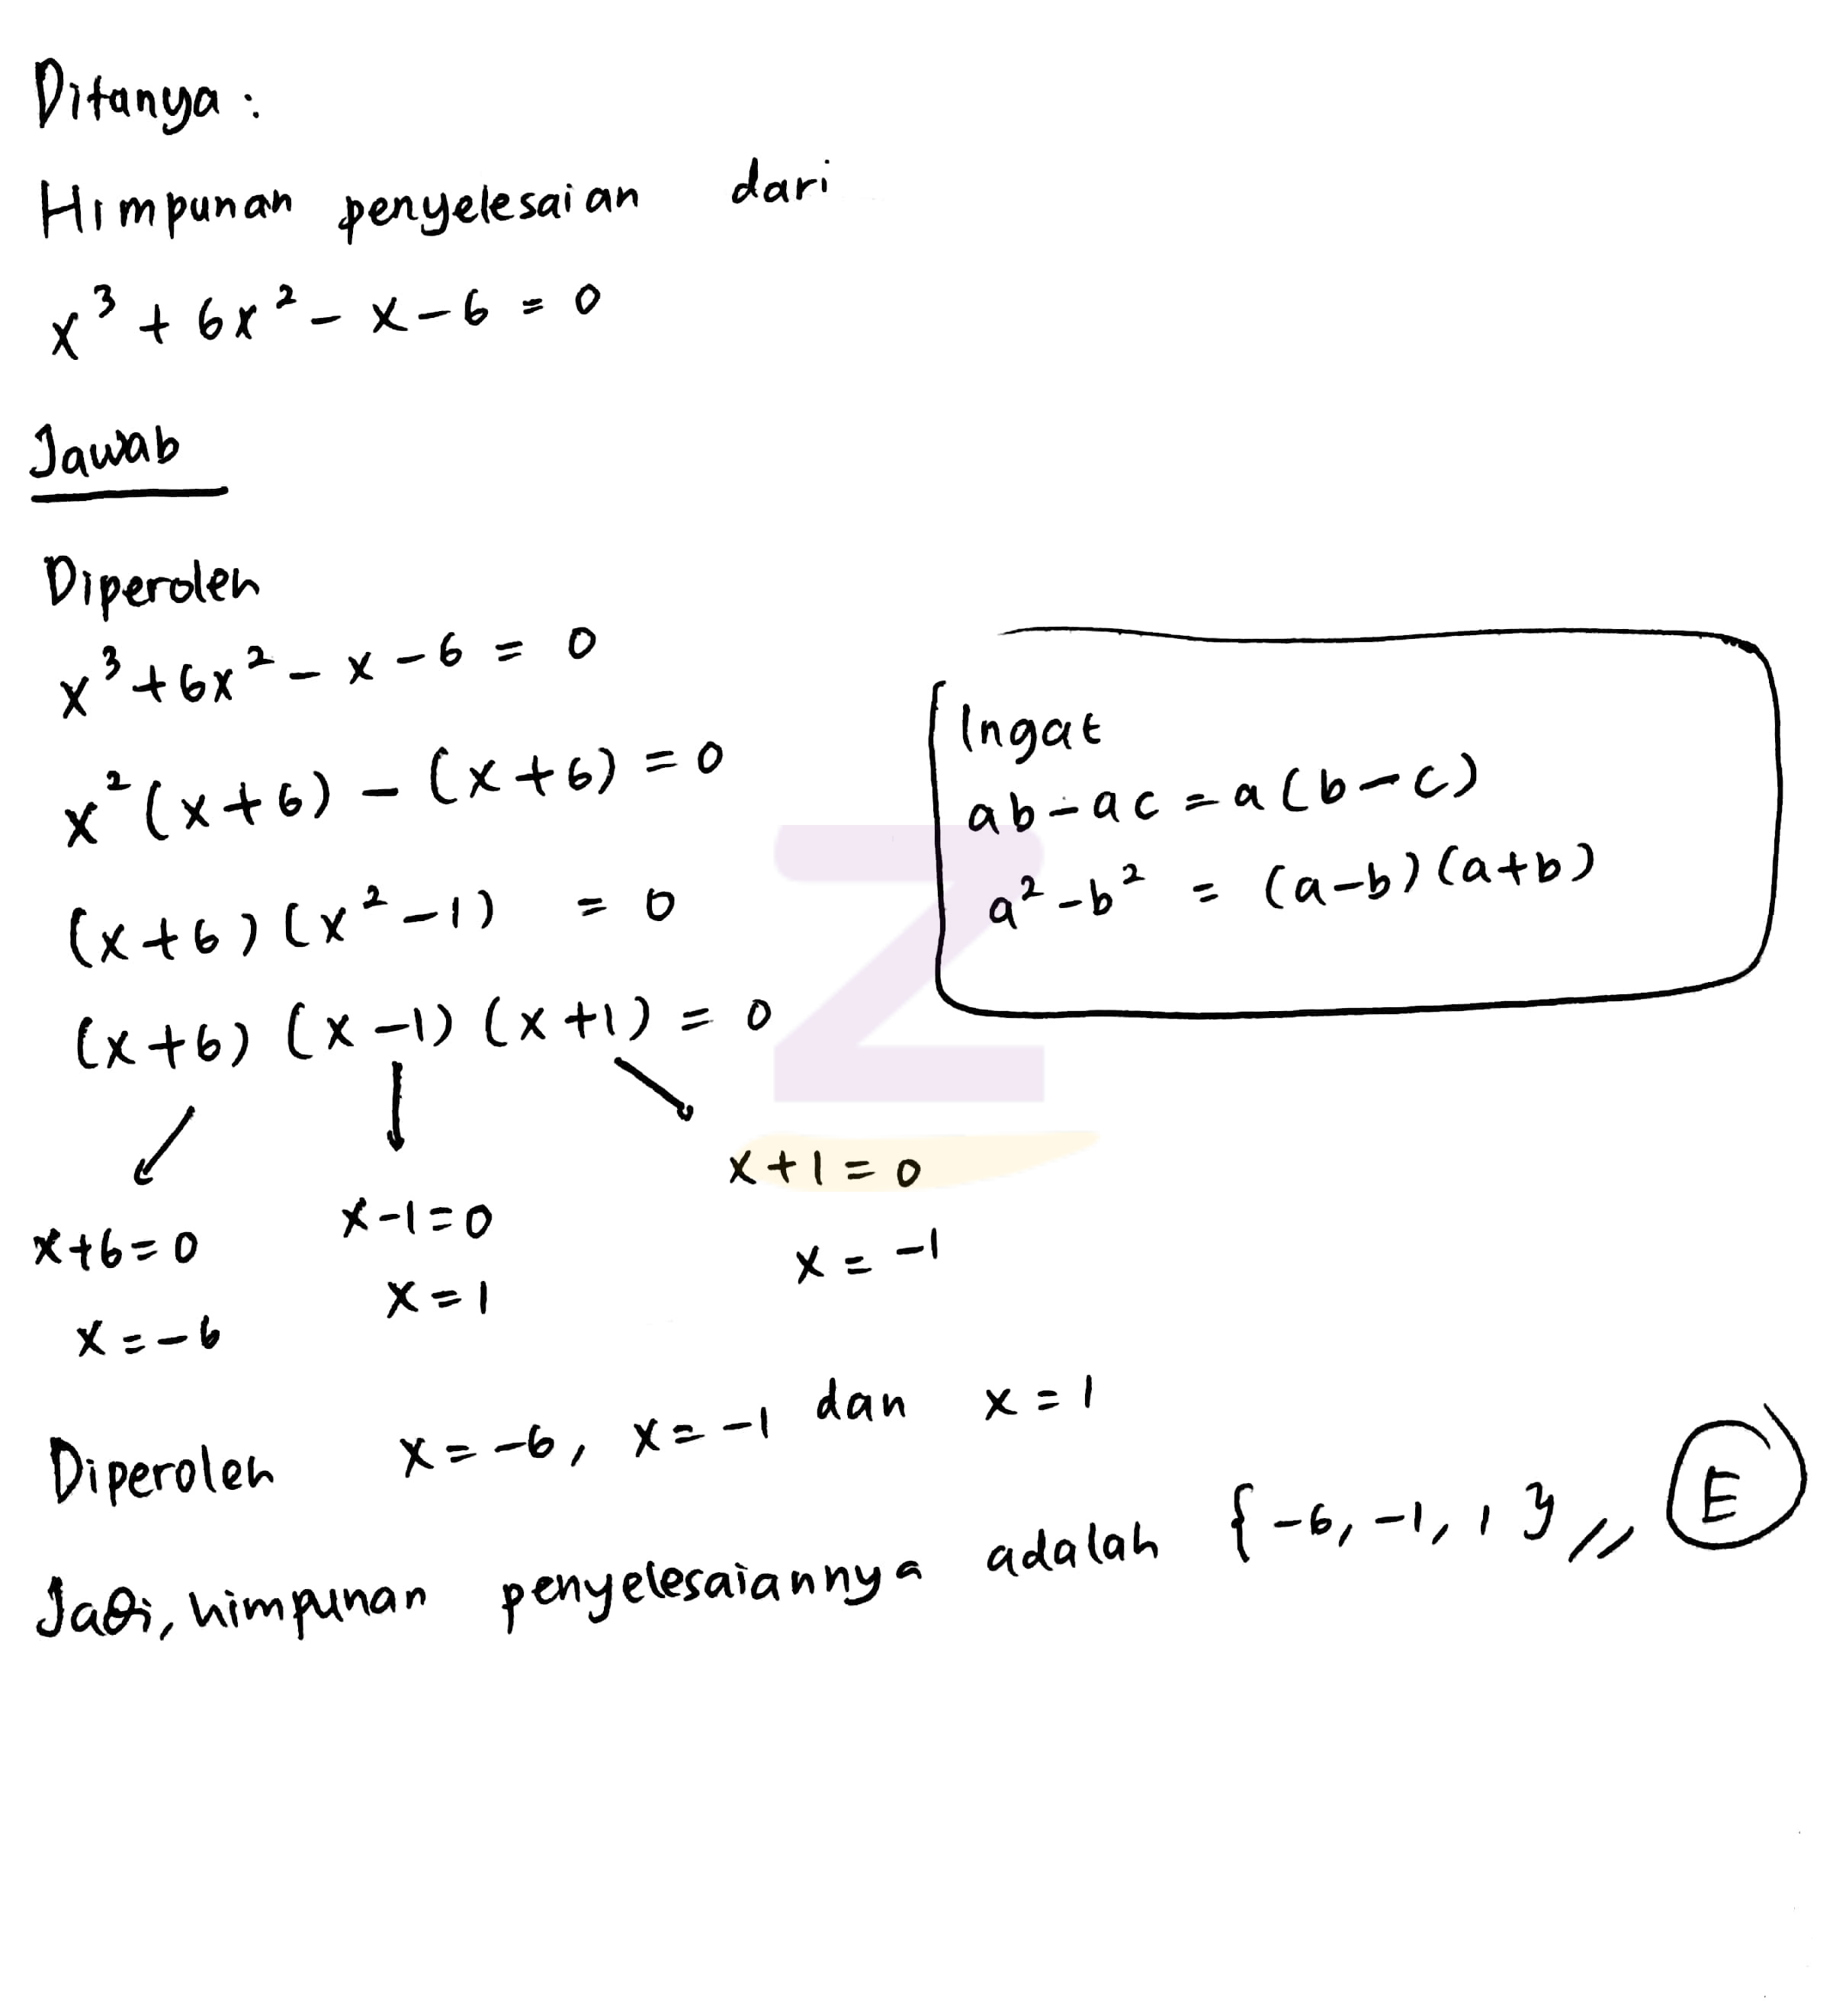 Ditanya :
Himpunan penyelesaian dari
x³ + 6x² − x − 6 = 0
Jawab
Diperoleh
x³ + 6x² − x − 6 = 0
x² (x+6) − (x+6) = 0
(x+6) (x² −1) = 0
(x+6) (x −1) (x +1) = 0
Ingat
ab − ac = a (b − c)
a² − b² = (a−b) (a+b)
x+6=0
x = −6
x−1=0
x = 1
x +1 = 0
x = −1
Diperoleh x = −6, x = −1 dan x = 1
Jadi, himpunan penyelesaiannya adalah { −6, −1, 1 } // E
Z